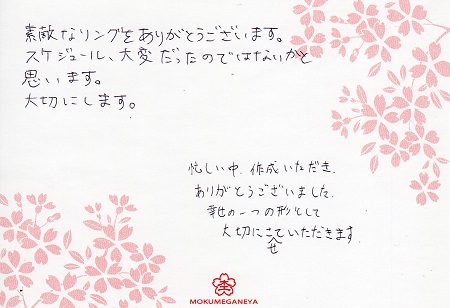 素敵なリングをありがとうございます。
スケジュール、大変だったのではないかと
思います。
大切にします。
忙しい中、作成いただき、
ありがとうございました。
幸せの一つの形として
大切にさせていただきます。
MOKUMEGANEYA